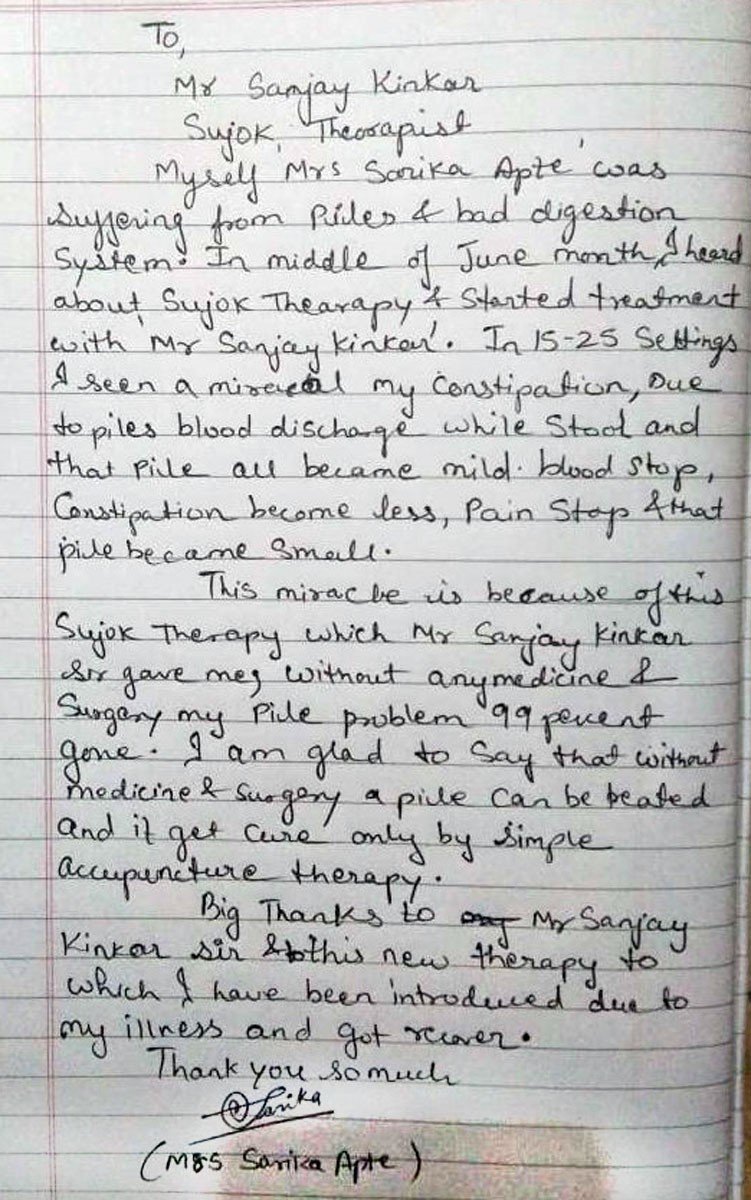 To,
Mr Sanjay Kinkar
Sujok, Theorapist
Myself 'Mrs Sarika Apte' was
suffering from Piles & bad digestion
System. In middle of June month, I heard
about Sujok Thearapy & Started treatment
with 'Mr Sanjay Kinkar'. In 15-25 Settings
I seen a my Constipation, Due
to piles blood discharge while Stool and
that Pile all became mild. blood stop,
Constipation become less, Pain Stop & that
pile became small.
This miracle is because of this
Sujok Therapy which Mr Sanjay Kinkar
sir gave me, without any medicine &
Surgery my Pile problem 99 pecent
gone. I am glad to say that without
medicine & surgery a pile can be
and it get cure only by simple
accupuncture therapy.
Big Thanks to Mr Sanjay
Kinkar sir & this new therapy to
which I have been introduced due to
my illness and got recover.
Thank you so much
Sarika
(Mrs Sarika Apte)